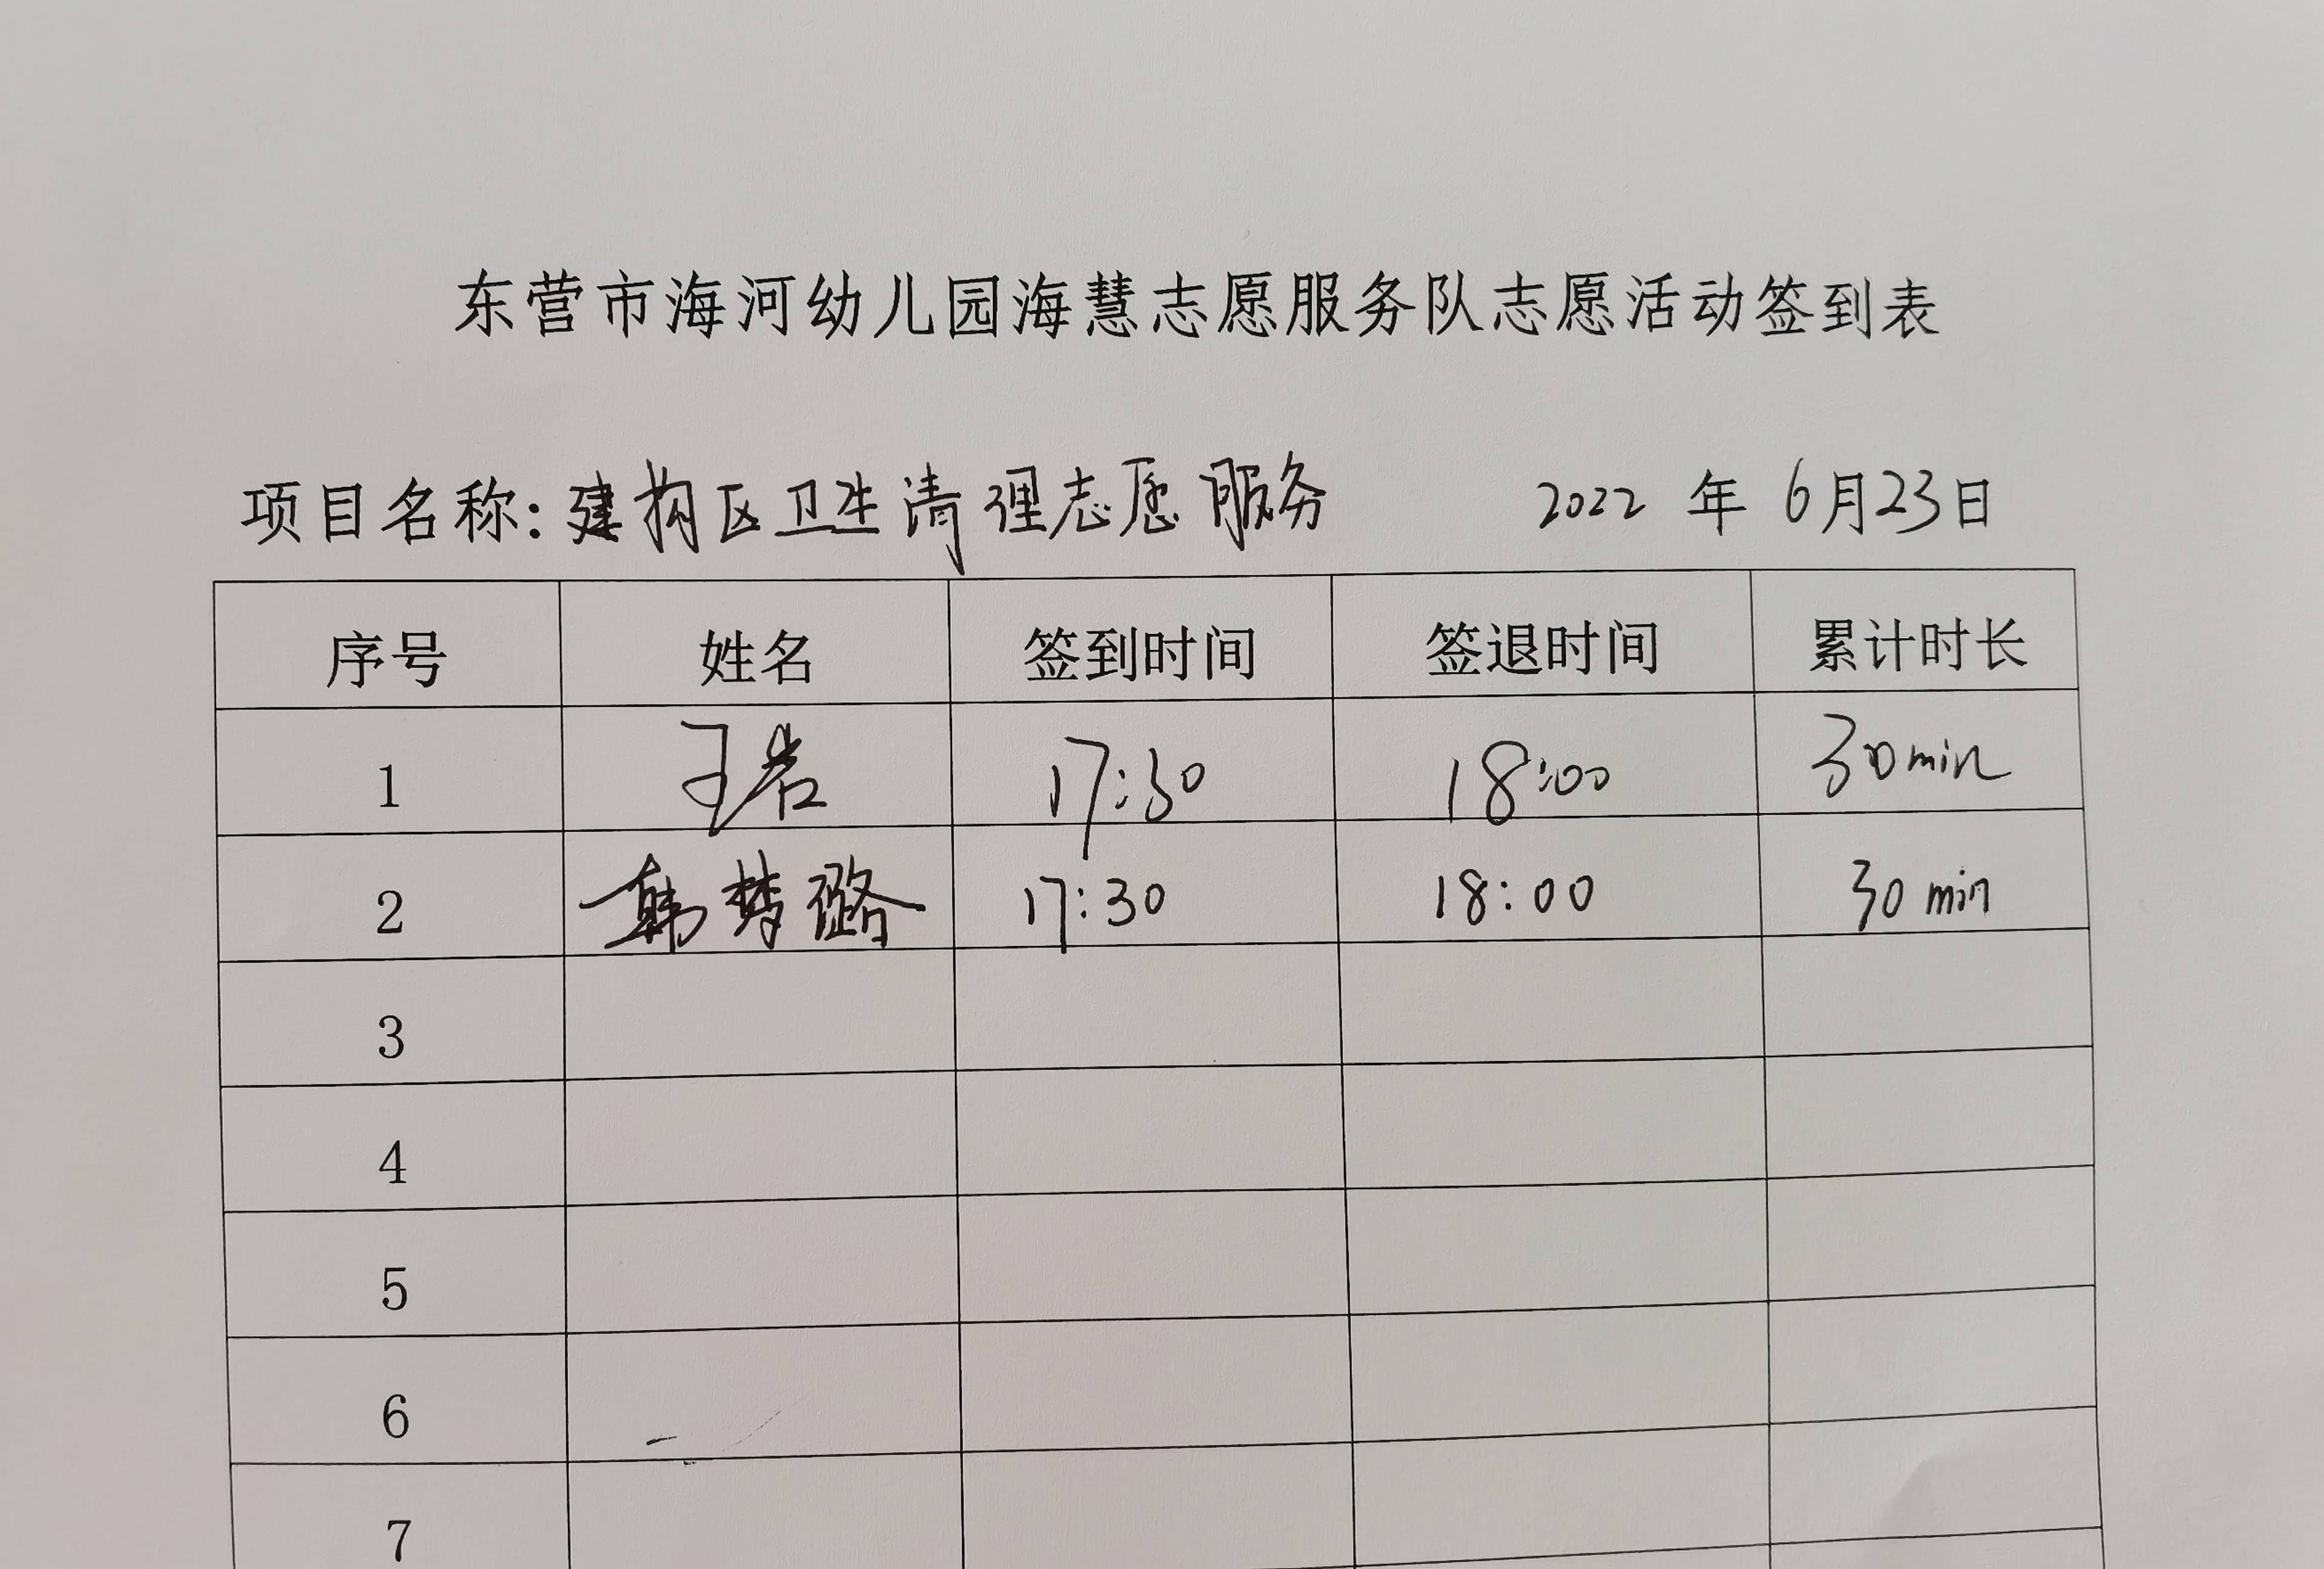 东营市海河幼儿园海慧志愿服务队志愿活动签到表
项目名称:建构区卫生清理志愿服务 2022 年 6月23日
序号 姓名 签到时间 签退时间 累计时长
1 王岩 17:30 18:00 30min
2 韩梦璐 17:30 18:00 30 min
3
4
5
6
7